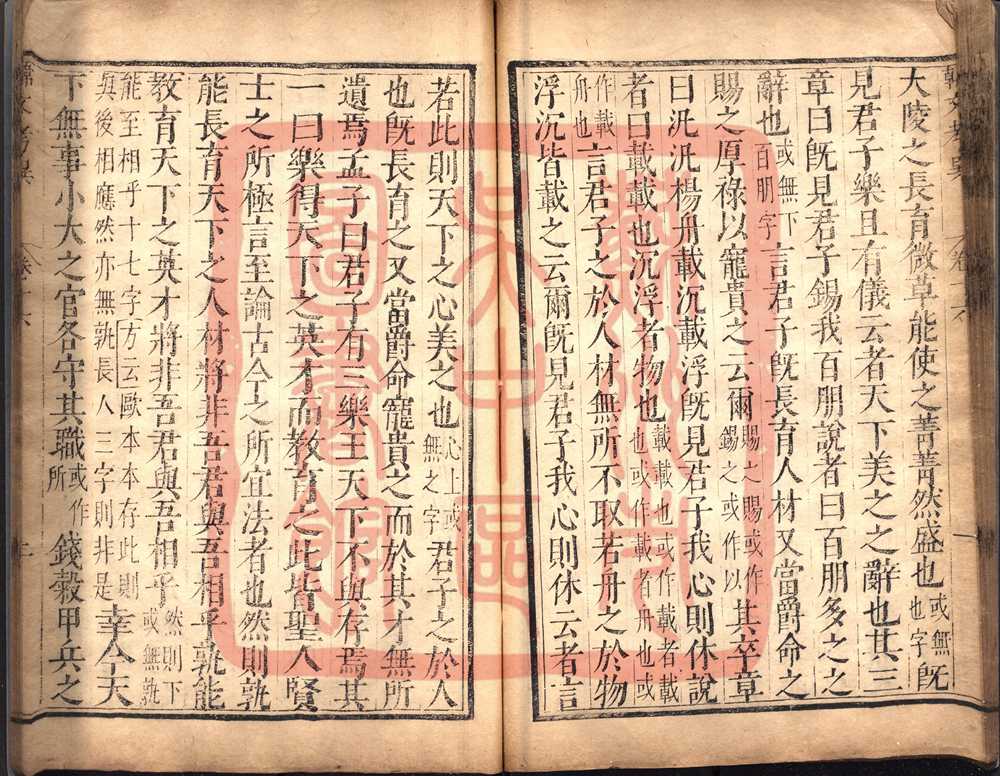 大陵之長育微草能使之菁菁然盛也或無也字既
見君子樂且有儀云者天下美之之辭也其三
章曰既見君子錫我百朋說者曰百朋多之之
辭也或無下百朋字言君子既長育人材又當爵命之
賜之厚祿以寵貴之云爾賜之賜或作錫之或作以其卒章
曰汎汎楊舟載沉載浮既見君子我心則休說
者曰載載也沉浮者物也載載也或作載者載也或作載者舟也或
作載舟也言君子之於人材無所不取若舟之於物
浮沉皆載之云爾既見君子我心則休云者言
若此則天下之心美之也心上或無之字君子之於人
也既長育之又當爵命寵貴之而於其才無所
遺焉孟子曰君子有三樂王天下不與存焉其
一曰樂得天下之英才而教育之此皆聖人賢
士之所極言至論古今之所宜法者也然則孰
能長育天下之人材將非吾君與吾相乎孰能
教育天下之英才將非吾君與吾相乎然則下或無孰
能至相乎十七字方云歐本本存此則與後相應然亦無孰長人三字則非是幸今天
下無事小大之官各守其職或作所錢穀甲兵之